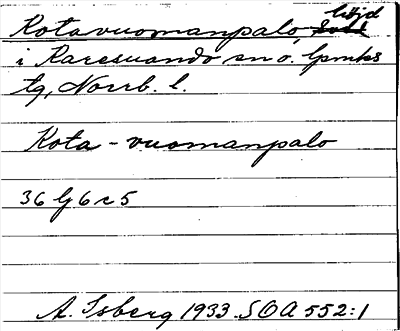 Kotavuomanpalo, höjd
i Karesuando sn o. lpmks
tg, Norrb. l.
Kota-vuomanpalo
36 G 6 c 5
A. Isberg 1933. SOA 552:1